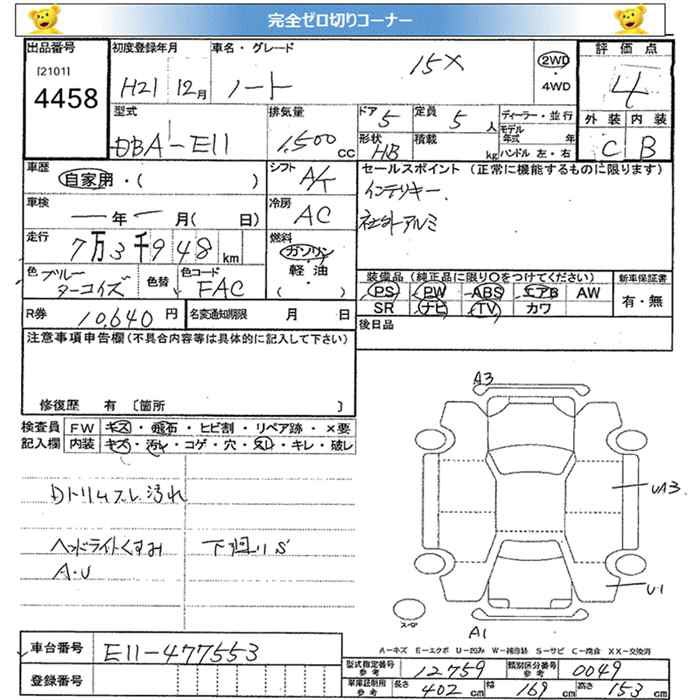 完全ゼロ切りコーナー
出品番号 初度登録年月 車名・グレード 15X 評価点
[2101] 4458 H21 12月 ノート 2WD・4WD 4
型式 排気量 ドア 5 定員 5人 ディーラー・並行 外装 内装
DBA-E11 1,500cc 形状 HB 積載 kg モデル年式 年 ハンドル 左・右 C B
車歴 自家用・( ) シフト A/T セールスポイント (正常に機能するものに限ります)
車検 ー年ー月(日) 冷房 AC インテリキー.
社外アルミ
走行 7万3千948km 燃料 ガソリン・軽油・( )
色 ブルーターコイズ 色替 色コード FAC 装備品(純正品に限り○をつけてください) 新車保証書
PS PW ABS エアB AW 有・無
SR ナビ TV カワ
R券 10,640円 名変通知期限 月 日 後日品
注意事項申告欄(不具合内容等は具体的に記入して下さい)
修復歴 有 〔箇所 〕
検査員 FW キズ・飛石・ヒビ割・リペア跡・×要
記入欄 内装 キズ・汚レ・コゲ・穴・スレ・キレ・破レ
A3
Dトリムスレ汚れ
UA3
ヘッドライトくすみ 下廻りS
A・U
U1
スペア
A1
A-キズ E-エクボ U-凹み W-補修跡 S-サビ C-腐食 XX-交換済
車台番号 E11-477553
型式指定番号 参考 12759 類別区分番号 参考 0049
登録番号 車庫証明用 参考 長さ 402cm 幅 169cm 高さ 153cm